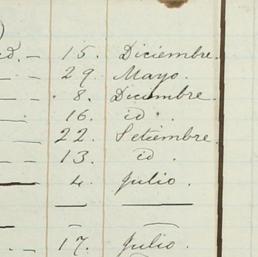 id. — 15. Diciembre.
— 29. Mayo.
— 8. Diciembre.
— 16. id.
— 22. Setiembre.
— 13. id.
— 4. Julio.
— —
. — 17. Julio.